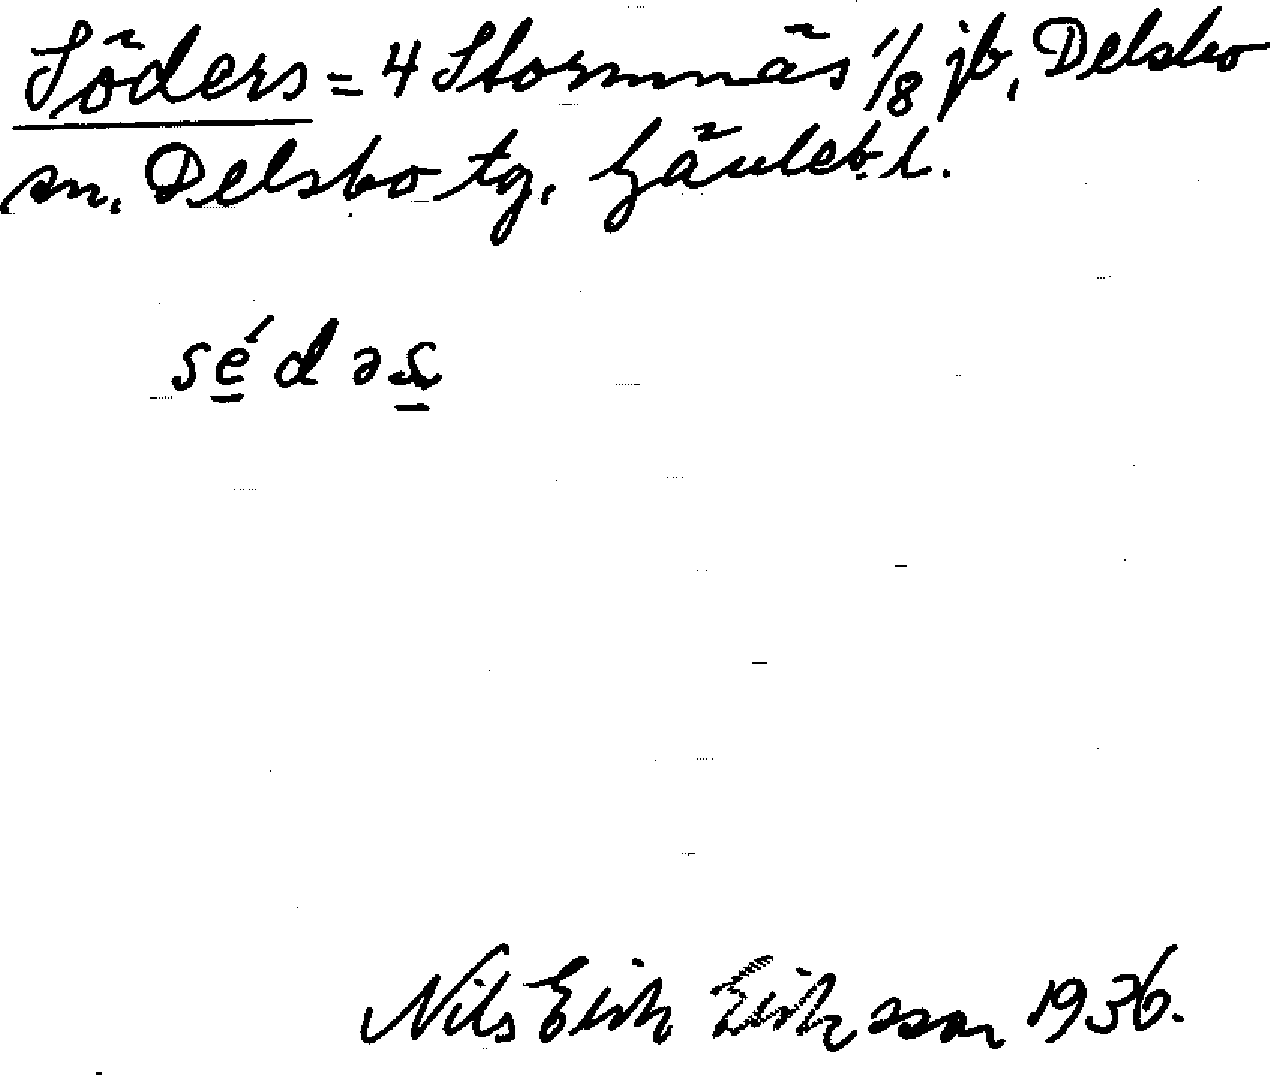 Söders = 4 Stormnäs 1/8 jb, Delsbo
sn. Delsbo tg. Gävleb. l.
sé̱dəs̱
Nils Erik Eriksson 1936.